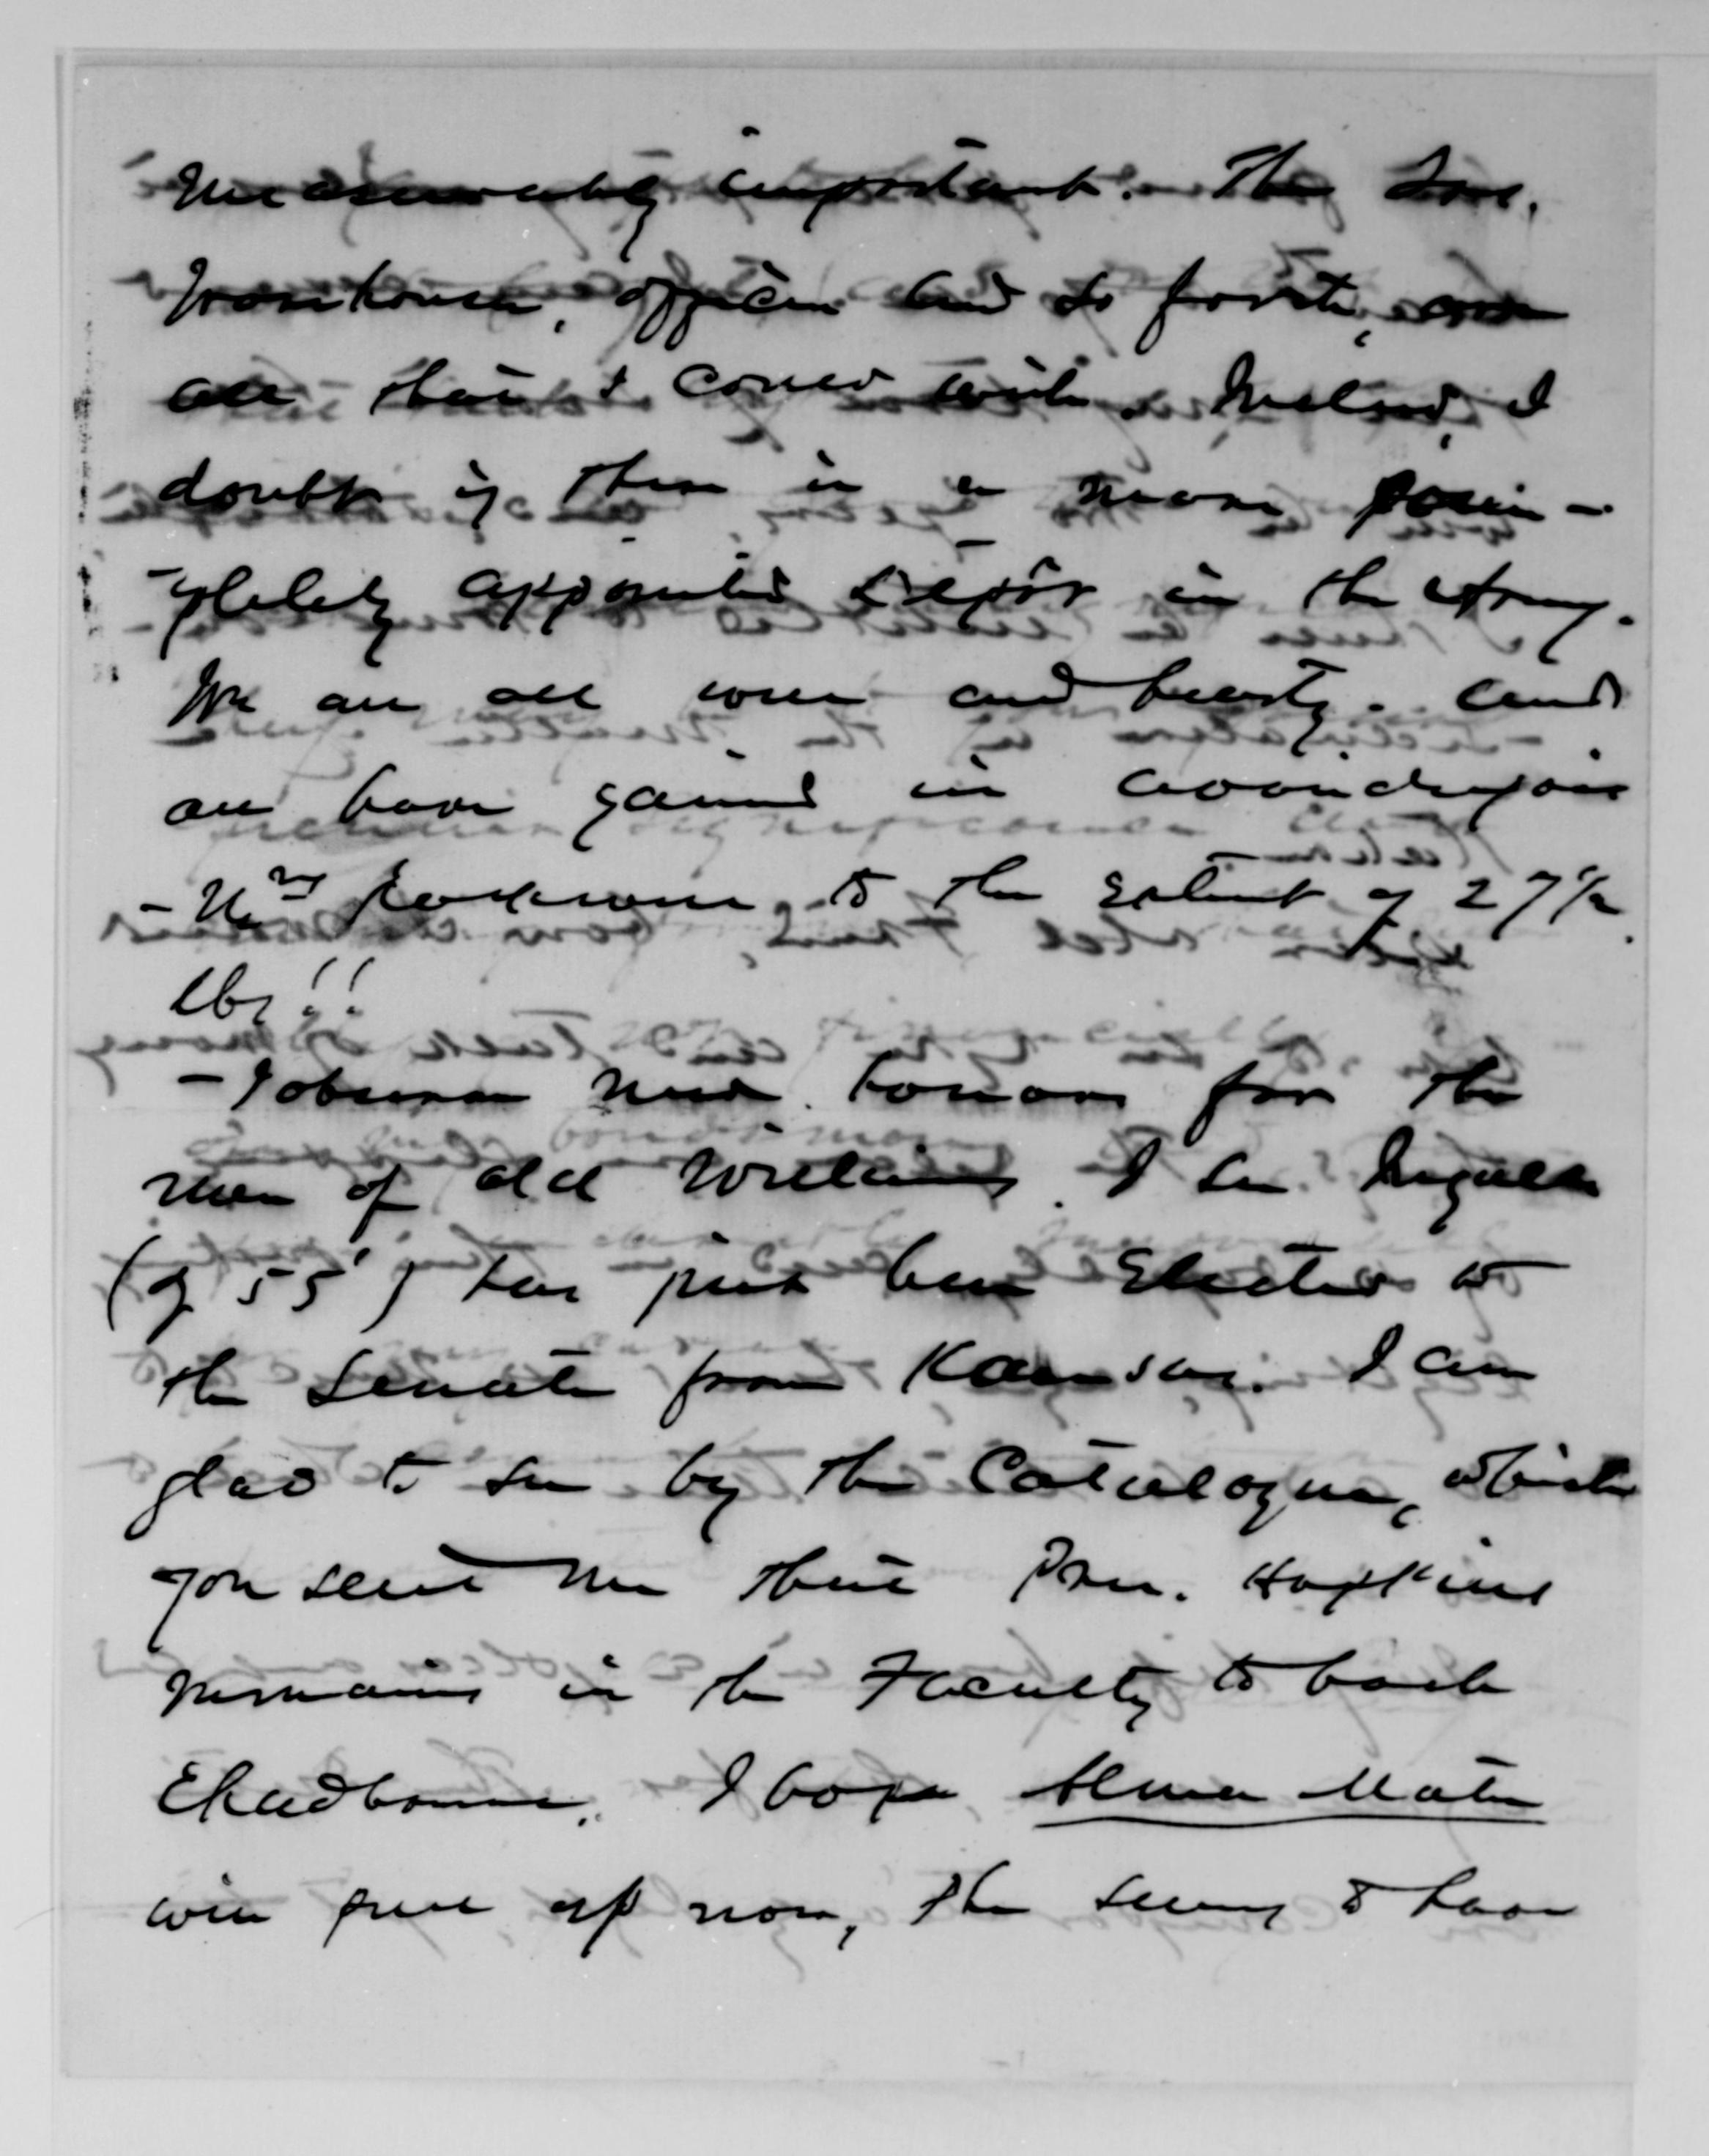 measurably important. The
Warehouses, offices and so forth, are
all that I could wish. Indeed, I
doubt if there is a more com-
-pletely appointed Depot in the Army.
We are all well and hearty. and
all have gained in avoirdupois
- Mrs Rockwell to the extent of 27 1/2
lbs!!
- I observe new honors for the
men of old Williams. I see Ingalls
(of 55') has just been Elected to
the Senate from Kansas. I am
glad to see by the Catalogue, which
you sent me that Pres. Hopkins
remains in the Faculty to back
Chadbourne. I hope Alma Mater
will pull up now, she seems to have